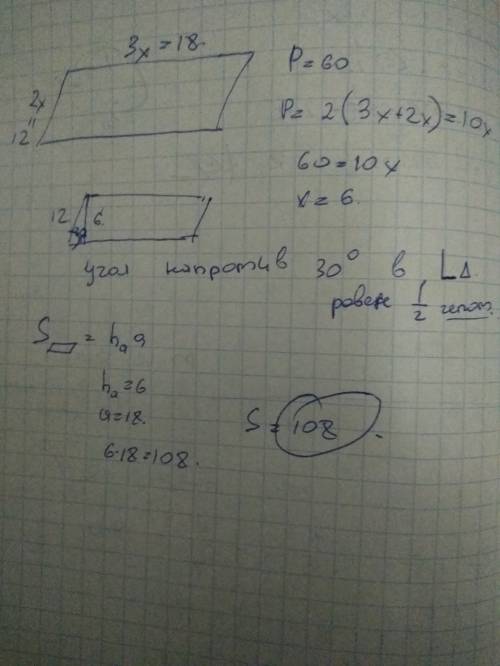 3x = 18.
2x
12
P = 60
P = 2(3x+2x) = 10x
60 = 10x
x = 6.
12 6
угол напротив 30° в ∟Δ
равен 1/2 гипот.
S▱ = hₐ a
hₐ = 6
a = 18.
6·18 = 108.
S = 108.